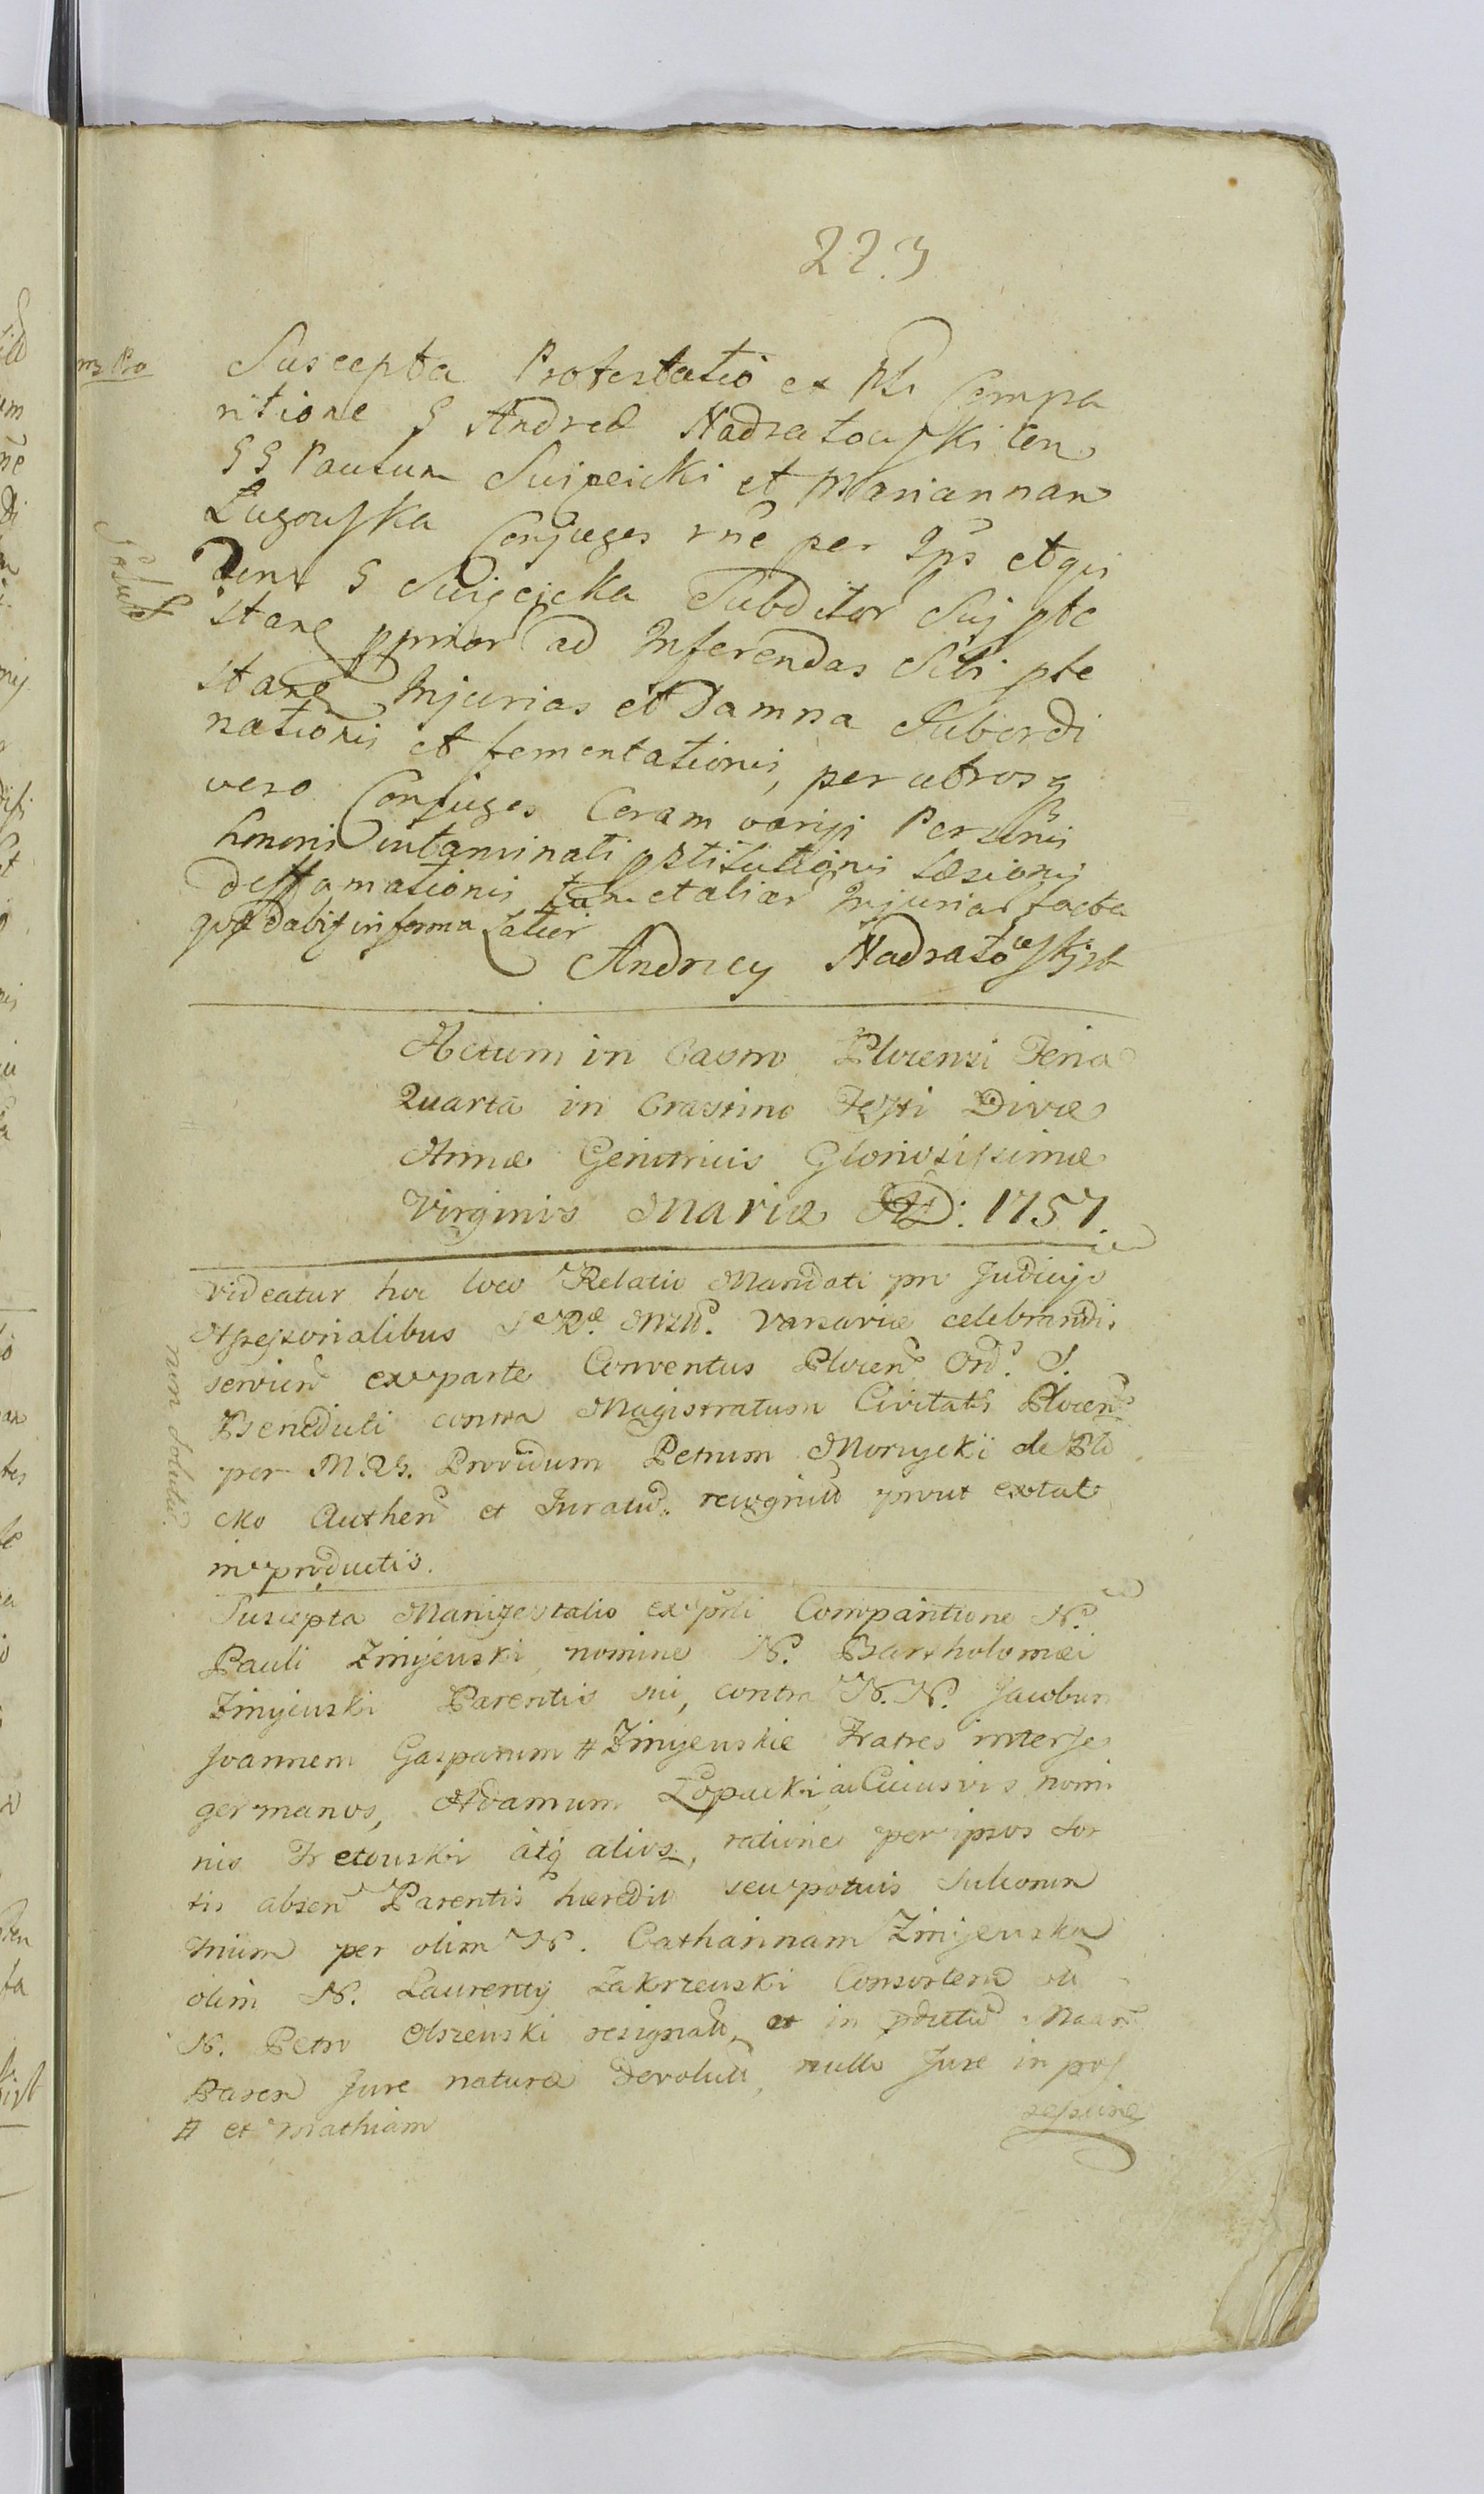 223
Suscepta Protestatio ex Psli Compa
ritione G Andreæ Nadratowski con
GG Paulum Swięcicki et Mariannam
Ługowska Conjuges rne per Ips et qui
dem G Swięcicka Subditor Suj pte
stang ad Inferendas Sibi pte
stang Injurias et Damna Subordi
nationis et fomentationis, per utrosq
vero Conjuges Coram varijs Personis
honoris intaminati læsionis
deffamationis tum et aliar Injuriar facta
qd dabit in forma Latior
Andrzey Nadratowski
Solut
Actum in Castro Plocensi Feria
Quarta in Crastino Festi Divæ
Annæ Genitricis Gloriosissimæ
Virginis Mariæ AD: 1757.
Videatur hoc loco Relatio Mandati pro Judicijs
Assessorialibus Varsaviæ celebrandis
servien ex parte Conventus Plocen Ord. S.
Benedicti contra Magistratum Civitatis Plocen
per M.RG. Providum Petrum Morzycki de Plo
cko Authen et Juratu. recognitu prout extat
in productis.
non solutu.
Suscepta Manifestatio ex psli Comparitione N.
Pauli Zmijewski, nomine N. Bartholomæi
Zmijewski Parentis sui, contra N.N. Jacobum
Joannem Gasparum # Zmijewskie Fratres inter se
germanos, Adamum Łopacki ac Cuiusvis nomi
nis Fretowski atq alios, ratione per ipsos Sor
tis absen Parentis hæredit seu potius Sulcorum
trium per olim N. Catharinam Zmijewska
olim N. Laurentij Zakrzewski Consortem oli
N. Petro Olszewski resignat, et in Maan
Baren Jure naturæ devolut, nullo Jure in pos
sessione
# et Mathiam